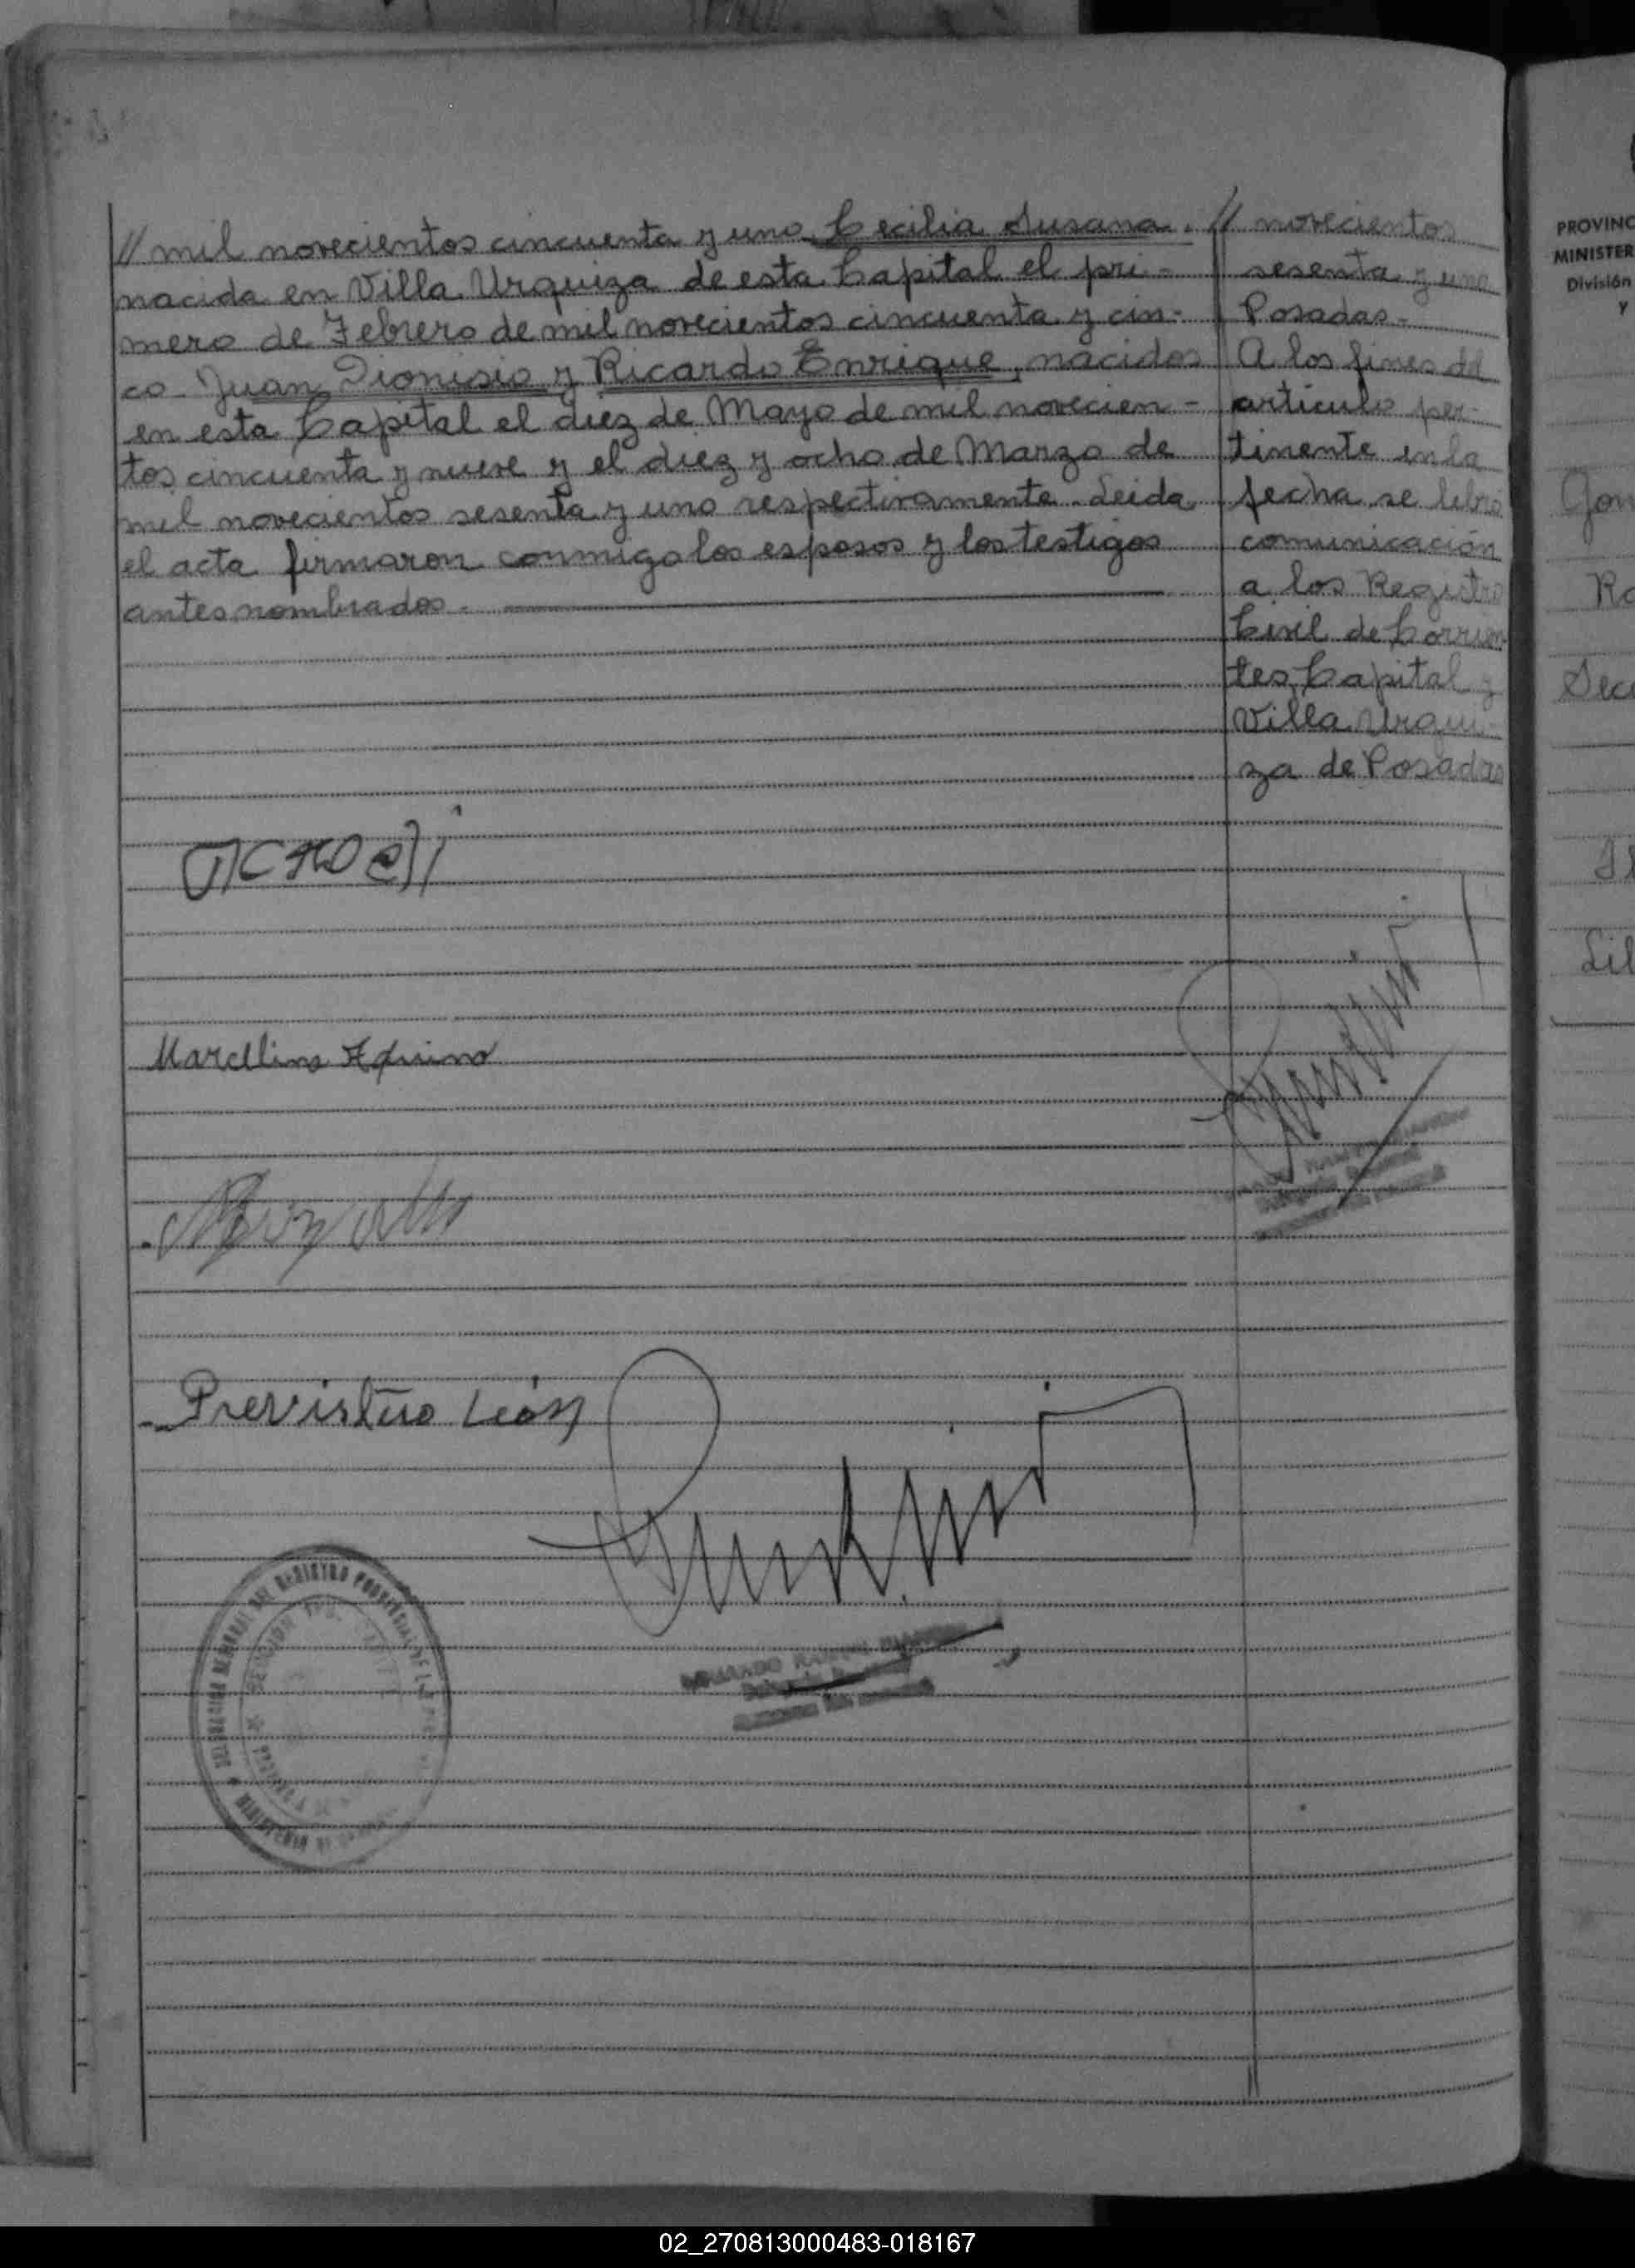 // mil novecientos cincuenta y uno Cecilia Susana.
nacida en Villa Urquiza de esta Capital el pri-
mero de Febrero de mil novecientos cincuenta y cin-
co. Juan Dionisio y Ricardo Enrique, nacidos
en esta Capital el diez de Mayo de mil novecien-
tos cincuenta y nueve y el diez y ocho de Marzo de
mil novecientos sesenta y uno respectivamente. Leida
el acta firmaron conmigo los esposos y los testigos
antes nombrados.
// novecientos
sesenta y uno
Posadas-
A los fines del
articulo per-
tinente en la
fecha se libró
comunicación
a los Registro
Civil de Corrien
tes Capital y
Villa Urqui-
za de Posadas
Marcelino Aquino
Previstero León
DEL REGISTRO PROVINCIAL DE LAS
SECCION
MINISTERIO DE
PROVINC
MINISTER
División
y
Gon
Ro
Sec
Lil
02_270813000483-018167